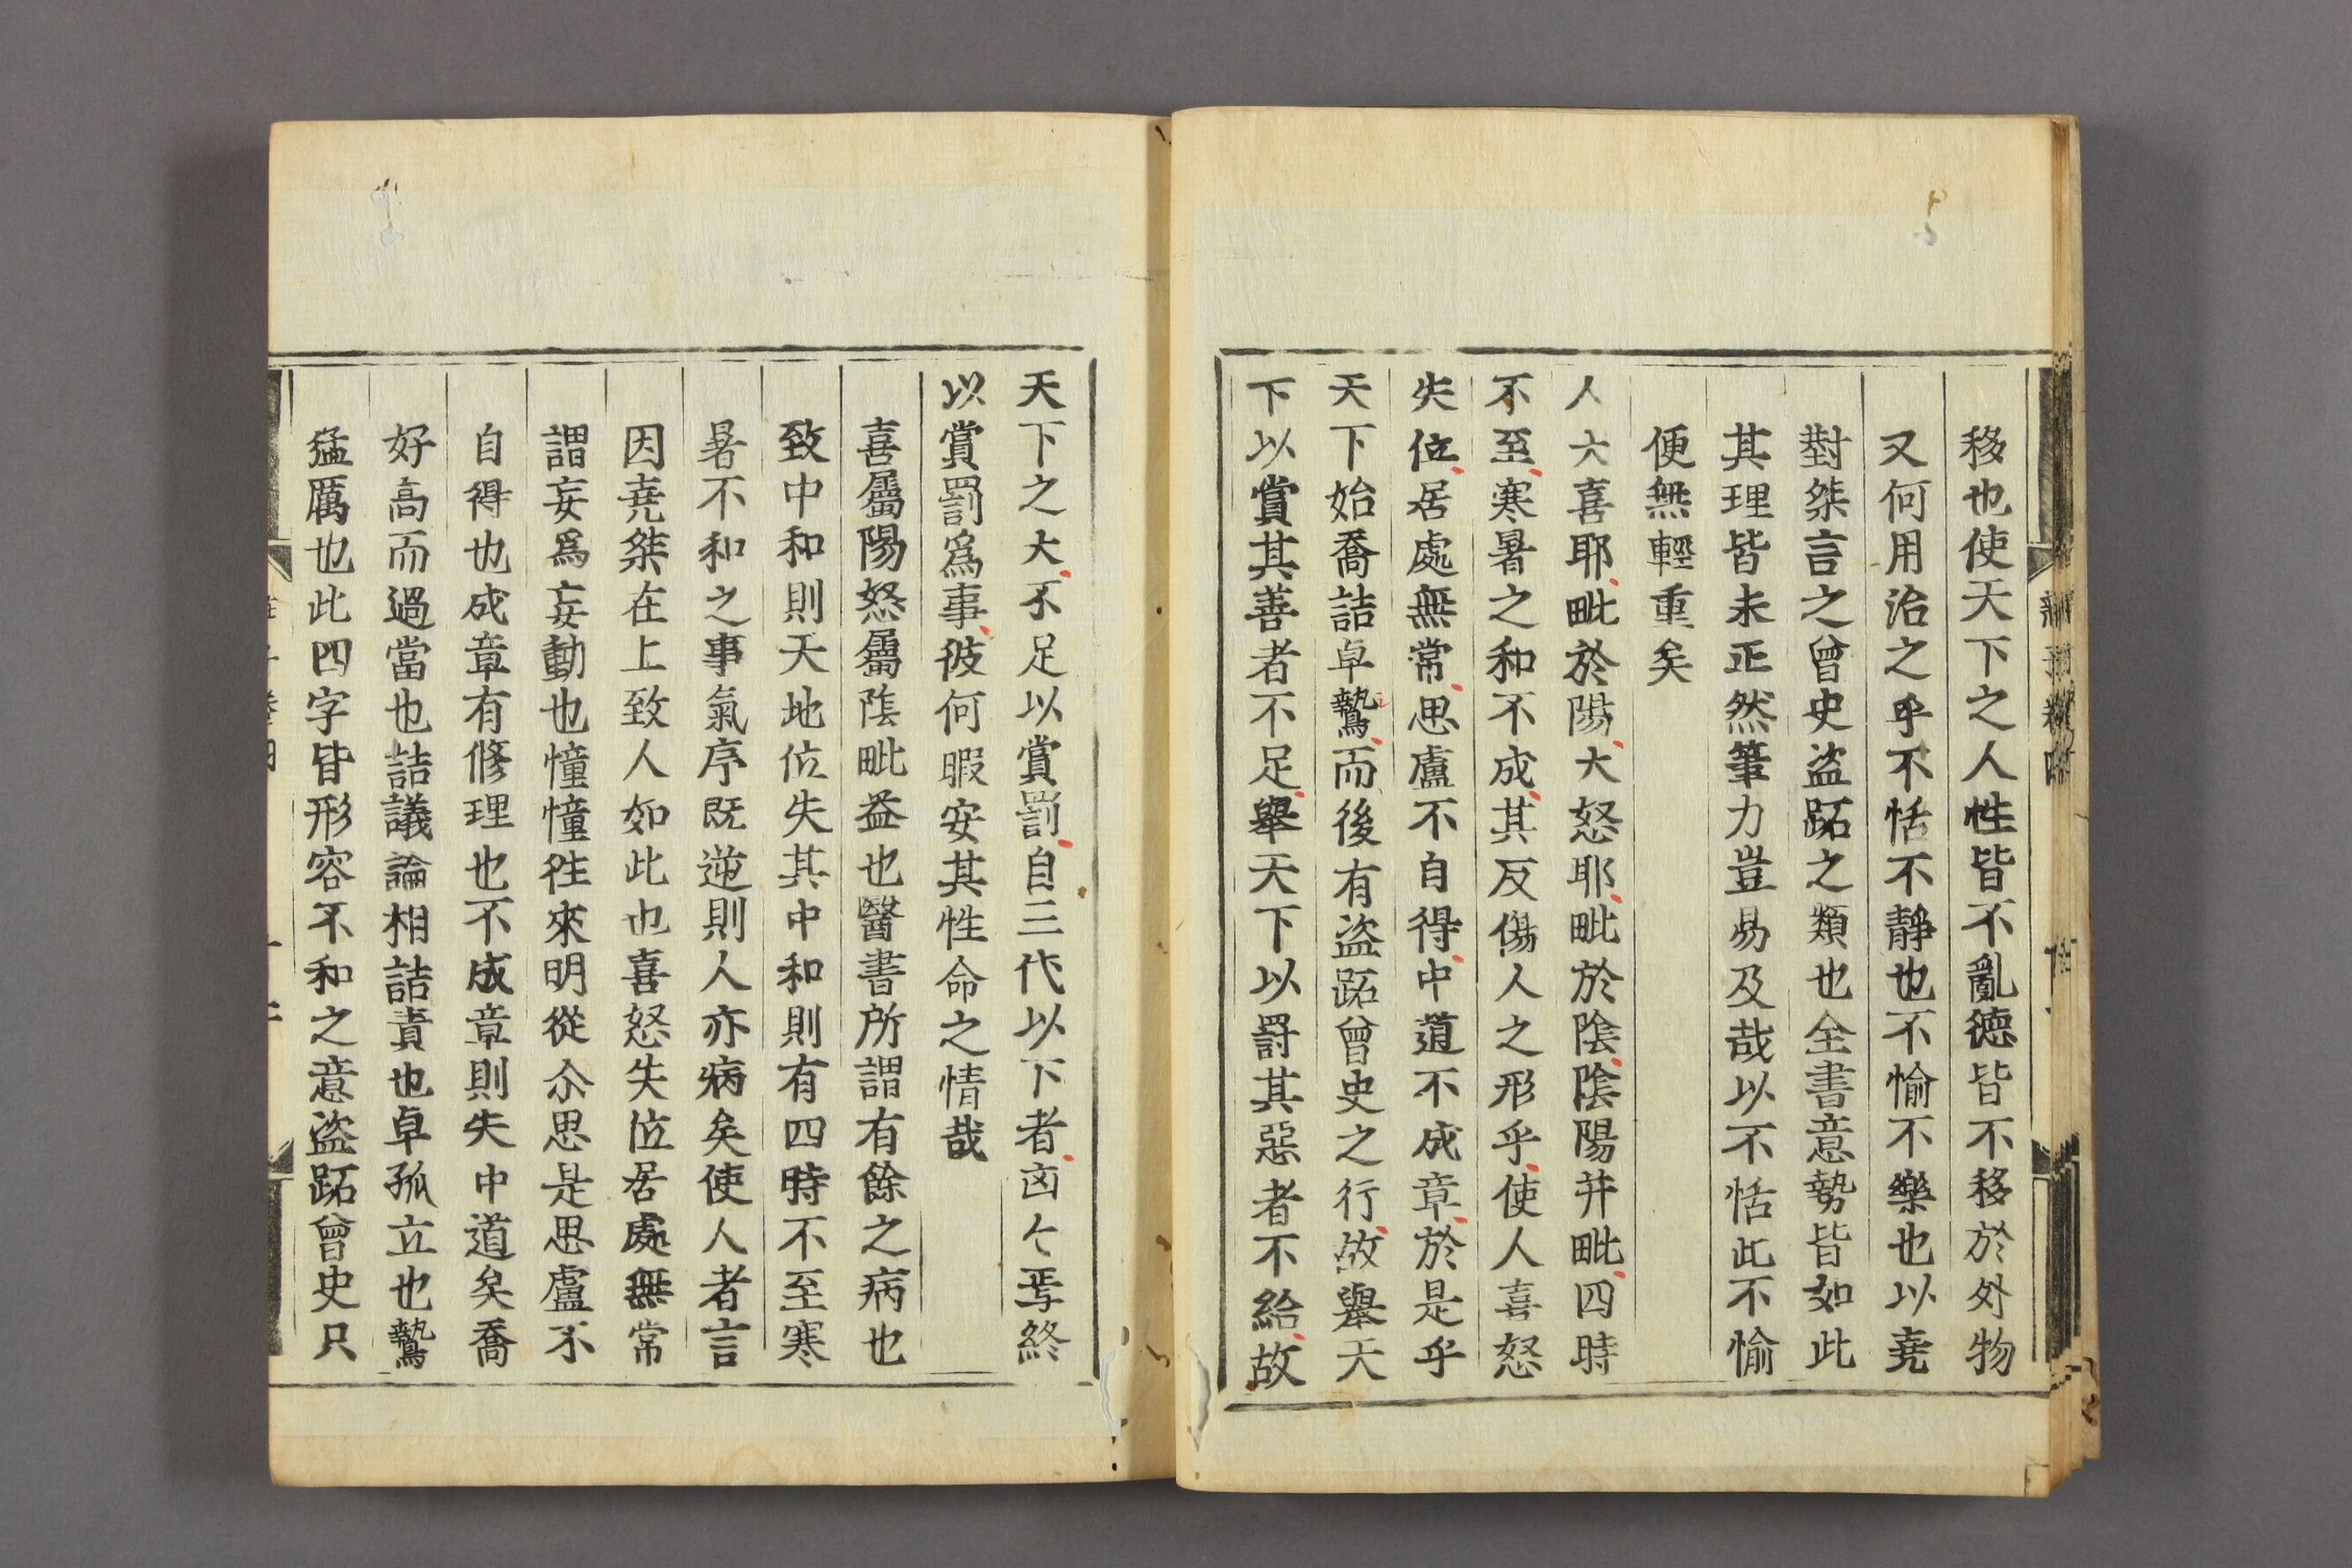 移也使天下之人性皆不亂德皆不移於外物
又何用治之乎不恬不靜也不愉不樂也以堯
對桀言之曾史盜跖之類也全書意勢皆如此
其理皆未正然筆力豈易及哉以不恬此不愉
便無輕重矣
人大喜耶毗於陽大怒耶毗於陰陰陽并毗四時
不至寒暑之和不成其反傷人之形乎使人喜怒
失位居處無常思慮不自得中道不成章於是乎
天下始喬詰卓鷙而後有盜跖曾史之行故舉天
下以賞其善者不足舉天下以罰其惡者不給故
天下之大不足以賞罰自三代以下者匈匈焉終
以賞罰爲事彼何暇安其性命之情哉
喜屬陽怒屬陰毗益也醫書所謂有餘之病也
致中和則天地位失其中和則有四時不至寒
暑不和之事氣序既逆則人亦病矣使人者言
因堯桀在上致人如此也喜怒失位居處無常
謂妄爲妄動也憧憧往來明從尒思是思慮不
自得也成章有修理也不成章則失中道矣喬
好高而過當也詰議論相詰責也卓孤立也鷙
猛厲也此四字皆形容不和之意盜跖曾史只